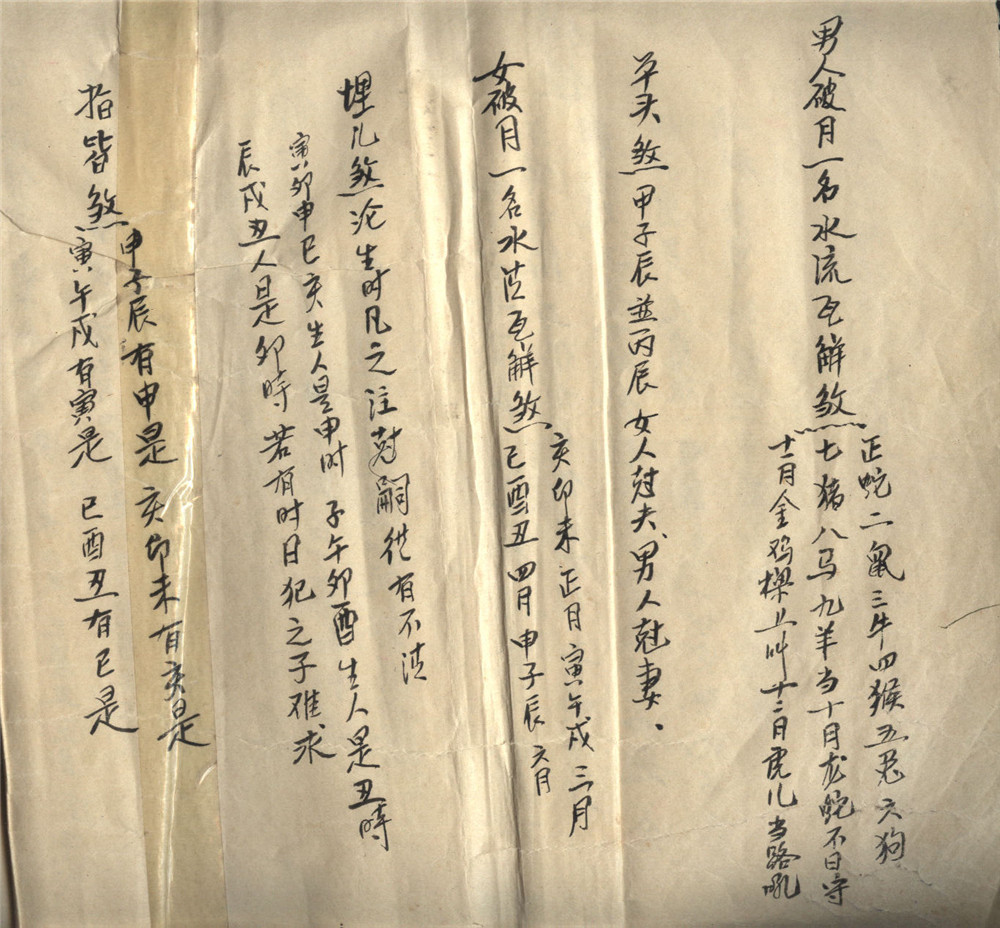 男人破月一名水流瓦解煞
正蛇二鼠三牛四猴五兔六狗
七猪八马九羊当十月龙蛇不日守
十一月金鸡樑上叫十二月虎儿当路吼
羊头煞甲子辰並丙辰女人尅夫、男人尅妻、
女破月一名水流瓦解煞
亥卯未正月寅午戍三月
巳酉丑四月申子辰六月
埋儿煞沦生时凡之注尅嗣徃有不法
寅卯申巳亥生人是申时子午卯酉生人是丑時
辰戍丑人是卯時若有时日犯之子难求
指皆煞
申子辰有申是亥卯未有亥是
寅午戍有寅是巳酉丑有巳是